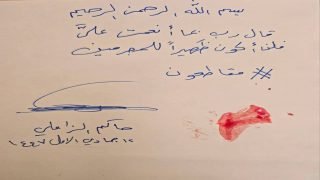 بسم الله الرحمن الرحيم
قال رب بما أنعمت عليَّ
فلن أكون ظهيراً للمجرمين
# مقاطعون
حاكم الزاملي
١٢ جمادي الاول ١٤٤٧